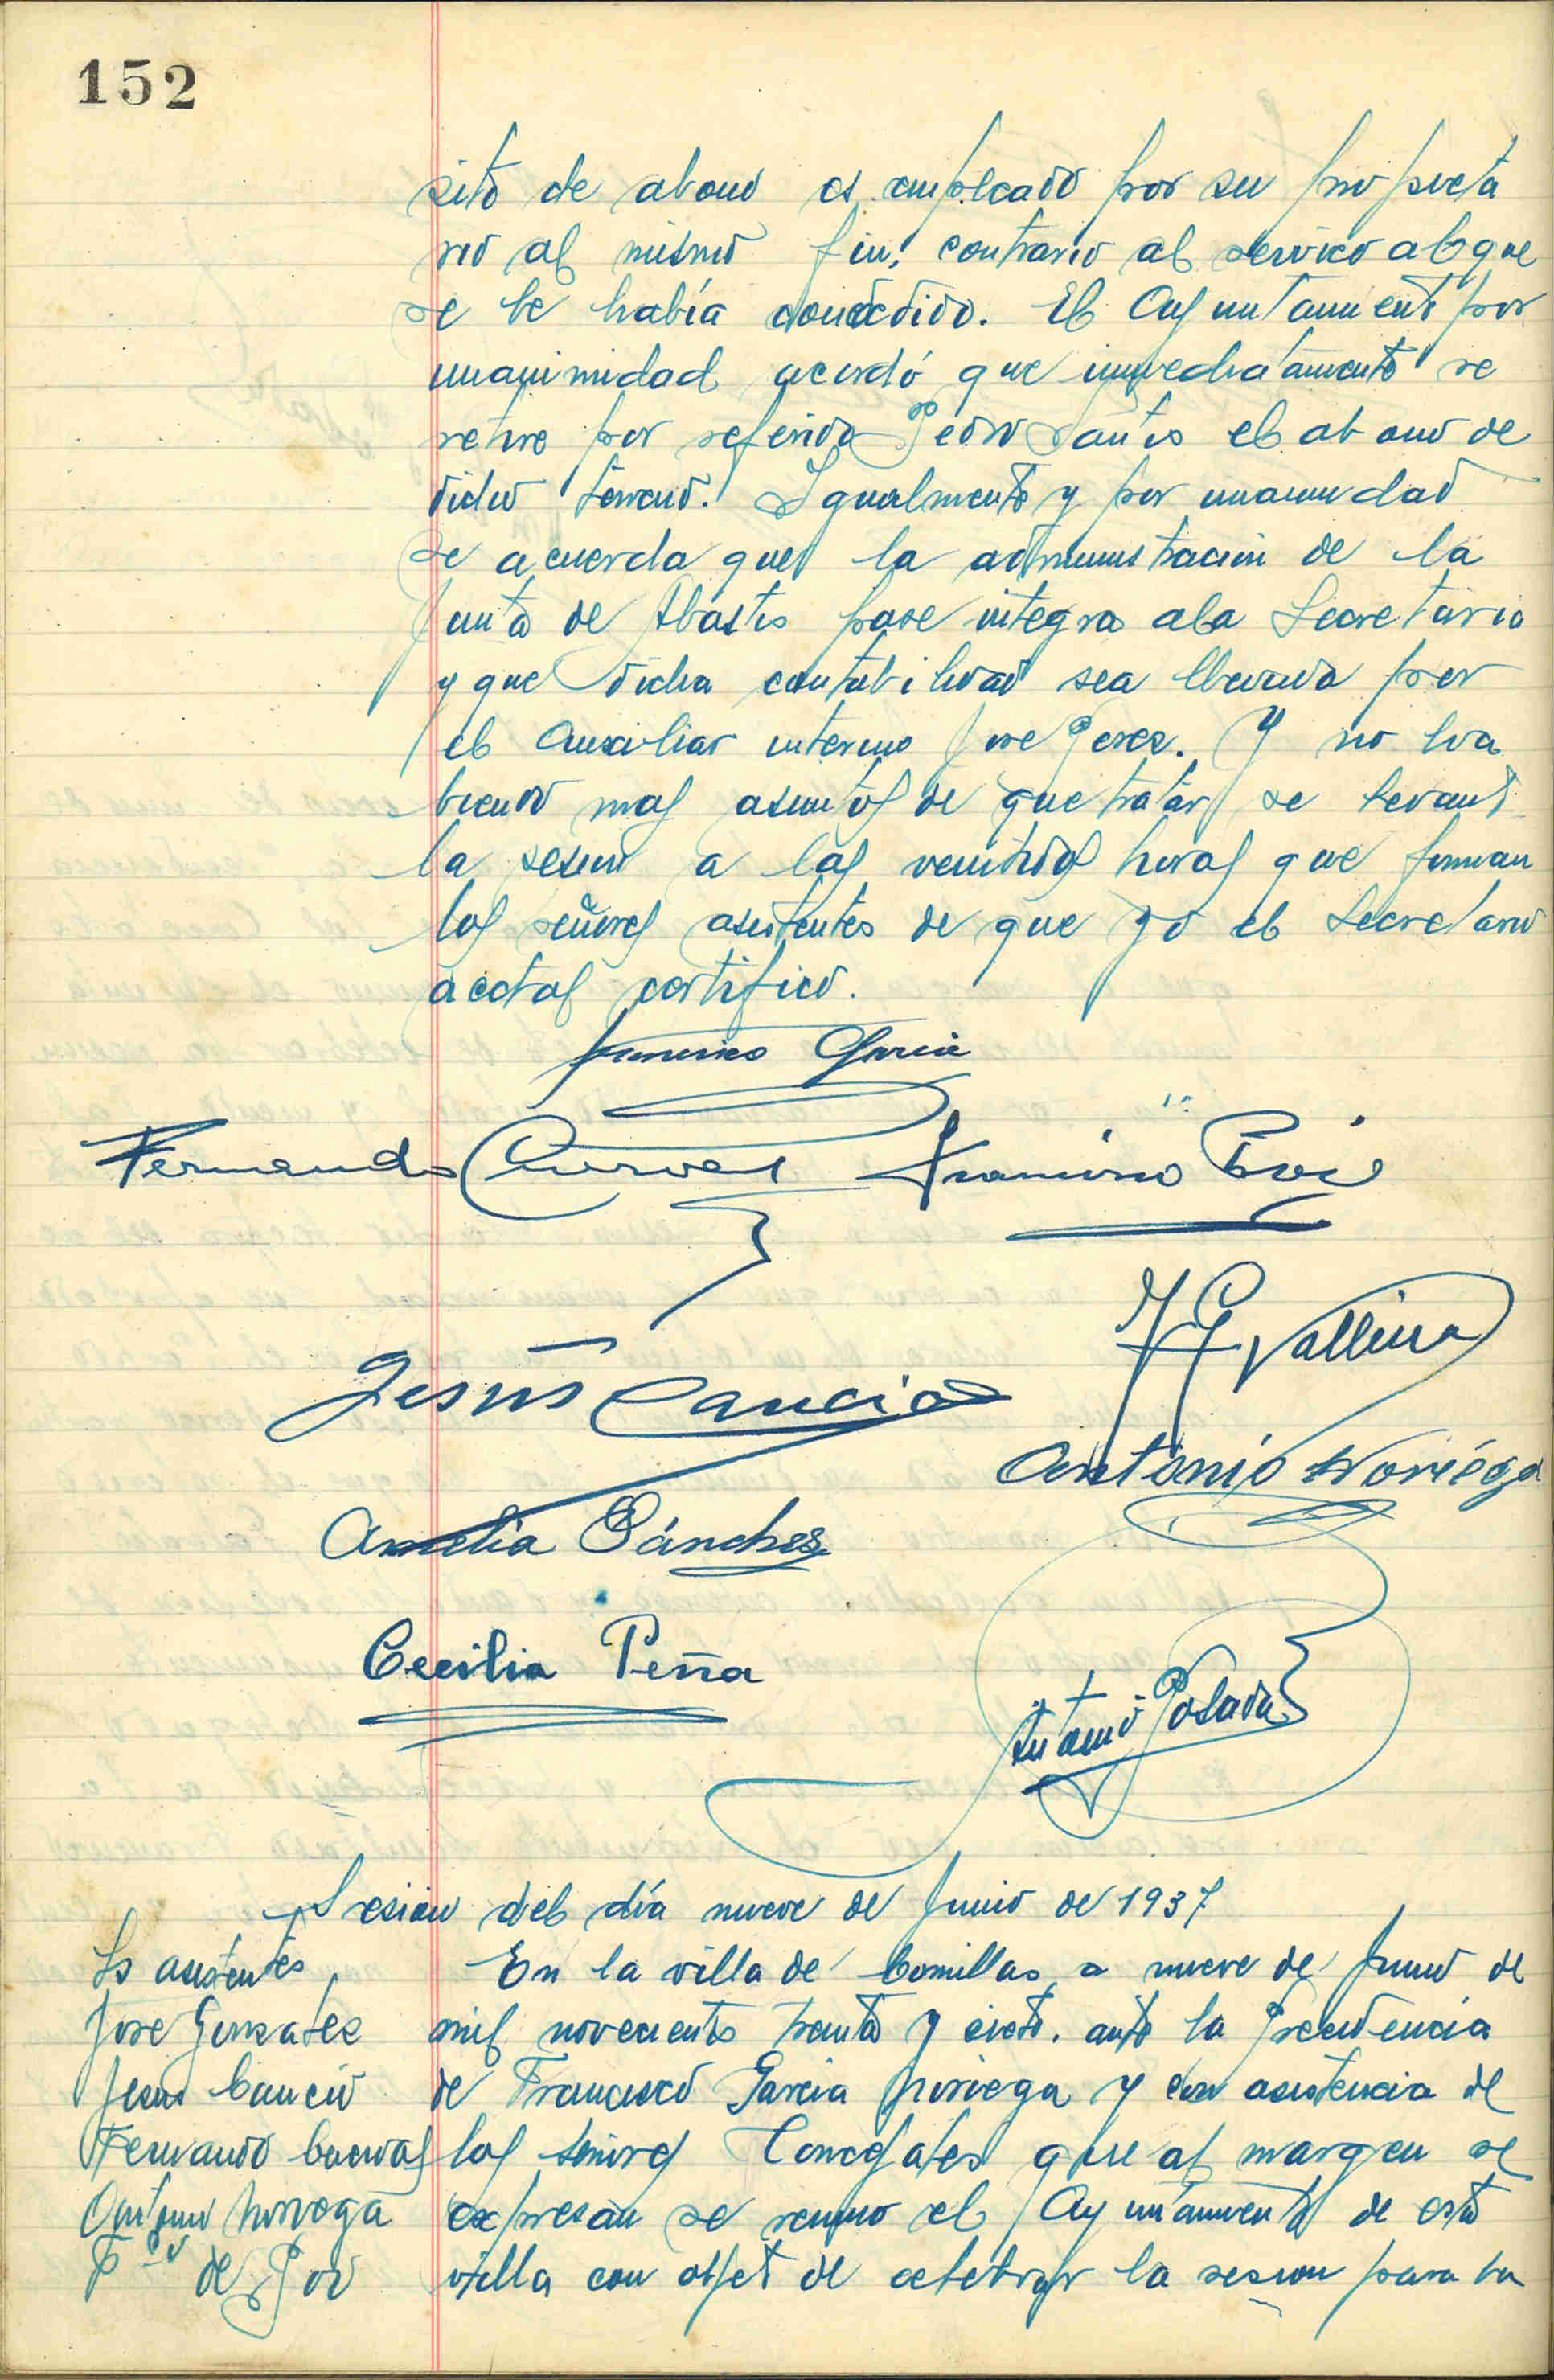 152
sito de abono es empleado por su propieta
rio al mismo fin, contrario al servicio al que
se le había concedido. El Ayuntamiento por
unanimidad acordó que inmediatamente se
retire por referido Pedro Santos el abono de
dicho terreno. Igualmente y por unanimidad
se acuerda que la administración de la
Junta de Abastos pase integra a la Secretaria
y que dicha contabilidad sea llevada por
el Auxiliar interino Jose Perez. Y no ha
biendo mas asuntos de que tratar se levantó
la sesion a las veintidos horas que firman
los señores asistentes de que yo el Secretario
acctal certifico.
Francisco Garcia
Fernando Cuevas Francisco
Vallina
Jesús Cancio
Antonio Noriega
Amelia Sánchez
Cecilia Peña
Antonio Posada
Sesion del día nueve de Junio de 1937
Ls asistentes
Jose Gonzalez
Jesus Cancio
Fernando Cuevas
Antonio Noriega
Fco de
En la villa de Comillas a nueve de Junio de
mil novecientos treinta y siete. ante la Presidencia
de Francisco Garcia Noriega y con asistencia de
los señores Concejales que al margen se
expresan se reunio el Ayuntamiento de esta
villa con objeto de celebrar la sesion para la